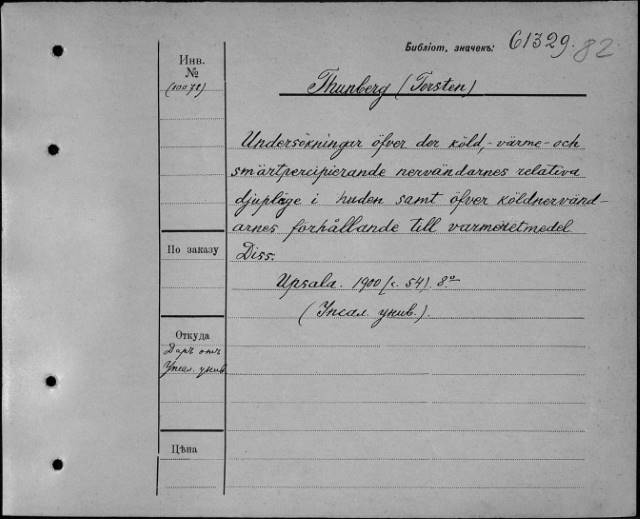 Библіот. значекъ: 61329. 82
Инв.
№
(10071)
Thunberg (Torsten)
Undersökningar öfver der köld,- värme- och
smärtpercipierande nervändarnes relativa
djupläge i huden samt öfver köldnervänd-
arnes förhållande till varmeretmedel
Diss.
Upsala. 1900 (с. 54). 8°
(Упсал. унив.).
По заказу
Откуда
Даръ отъ
Упсал. унив.
Цѣна